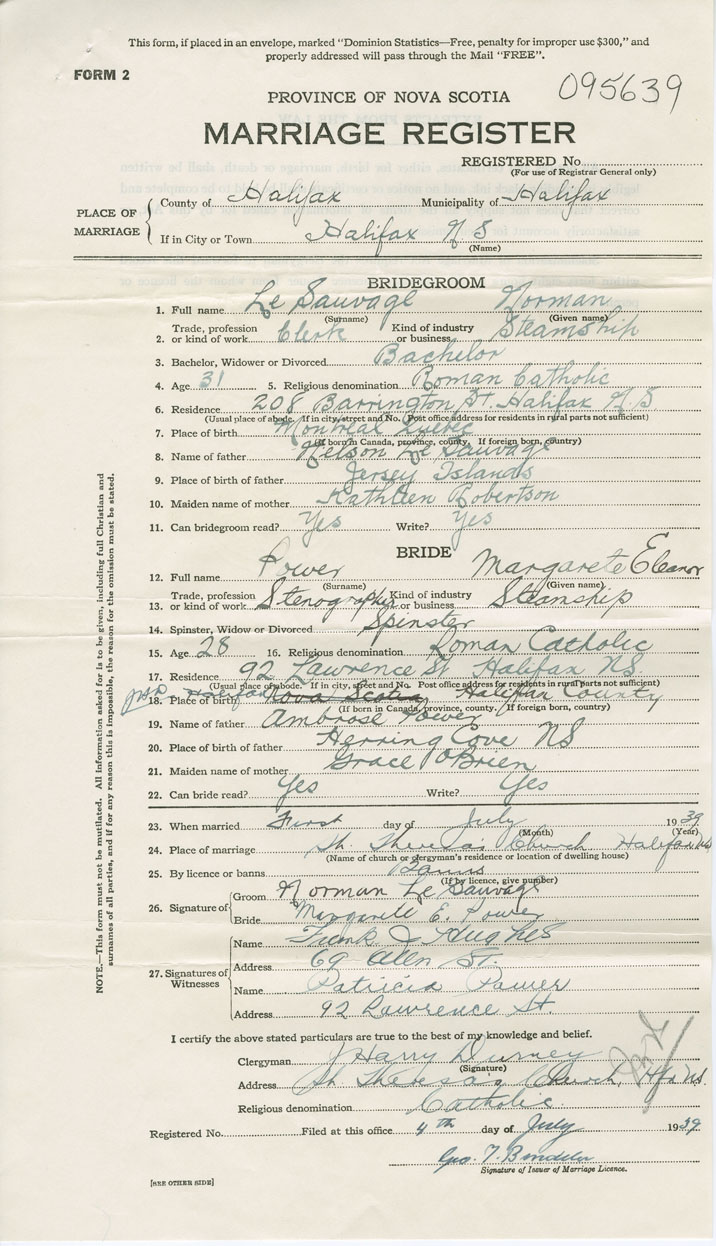 This form, if placed in an envelope, marked "Dominion Statistics—Free, penalty for improper use $300," and
properly addressed will pass through the Mail "FREE".
FORM 2
095639
PROVINCE OF NOVA SCOTIA
MARRIAGE REGISTER
REGISTERED No.
(For use of Registrar General only)
PLACE OF MARRIAGE
County of Halifax Municipality of Halifax
If in City or Town Halifax N S
(Name)
BRIDEGROOM
1. Full name Le Sauvage Norman
(Surname) (Given name)
2. Trade, profession or kind of work Clerk Kind of industry or business Steamship
3. Bachelor, Widower or Divorced Bachelor
4. Age 31 5. Religious denomination Roman Catholic
6. Residence 208 Barrington St. Halifax N S
(Usual place of abode. If in city, street and No. Post office address for residents in rural parts not sufficient)
7. Place of birth Montreal Quebec
(If born in Canada, province, county, If foreign born, country)
8. Name of father Nelson Le Sauvage
9. Place of birth of father Jersey Islands
10. Maiden name of mother Kathleen Robertson
11. Can bridegroom read? Yes Write? Yes
BRIDE
12. Full name Power Margarete Eleanor
(Surname) (Given name)
13. Trade, profession or kind of work Stenographer Kind of industry or business Steamship
14. Spinster, Widow or Divorced Spinster
15. Age 28 16. Religious denomination Roman Catholic
17. Residence 92 Lawrence St Halifax NS
(Usual place of abode. If in city, street and No. Post office address for residents in rural parts not sufficient)
18. Place of birth Halifax Nova Scotia Halifax County
(If born in Canada, province, county. If foreign born, country)
19. Name of father Ambrose Power
20. Place of birth of father Herring Cove NS
21. Maiden name of mother Grace O'Brien
22. Can bride read? Yes Write? Yes
23. When married First day of July 1939
(Month) (Year)
24. Place of marriage St. Theresa's Church Halifax NS
(Name of church or clergyman's residence or location of dwelling house)
25. By licence or banns Banns
(If by licence, give number)
26. Signature of
Groom Norman Le Sauvage
Bride Margarete E. Power
27. Signatures of Witnesses
Name Frank J Hughes
Address 69 Allen St.
Name Patricia Power
Address 92 Lawrence St.
I certify the above stated particulars are true to the best of my knowledge and belief.
Clergyman J Harry Durney
(Signature)
Address St Theresa's Church, Hfx NS.
Religious denomination Catholic.
Registered No. Filed at this office 4th day of July 1939
Geo. T.
Signature of Issuer of Marriage Licence.
[SEE OTHER SIDE]
NOTE.—This form must not be mutilated. All information asked for is to be given, including full Christian and
surnames of all parties, and if for any reason this is impossible, the reason for the omission must be stated.